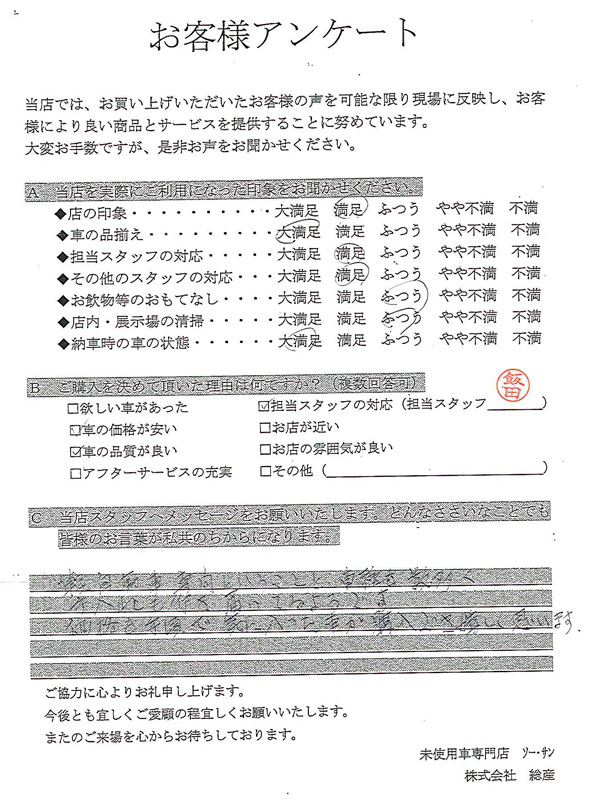 お客様アンケート
当店では、お買い上げいただいたお客様の声を可能な限り現場に反映し、お客
様により良い商品とサービスを提供することに努めています。
大変お手数ですが、是非お声をお聞かせください。
A 当店を実際にご利用になった印象をお聞かせください。
◆店の印象・・・・・・・・・・大満足 満足 ふつう やや不満 不満
◆車の品揃え・・・・・・・・・大満足 満足 ふつう やや不満 不満
◆担当スタッフの対応・・・・・大満足 満足 ふつう やや不満 不満
◆その他のスタッフの対応・・・大満足 満足 ふつう やや不満 不満
◆お飲物等のおもてなし・・・・大満足 満足 ふつう やや不満 不満
◆店内・展示場の清掃・・・・・大満足 満足 ふつう やや不満 不満
◆納車時の車の状態・・・・・・大満足 満足 ふつう やや不満 不満
B ご購入を決めて頂いた理由は何ですか?(複数回答可)
□欲しい車があった ☑担当スタッフの対応(担当スタッフ 飯田)
☑車の価格が安い □お店が近い
☑車の品質が良い □お店の雰囲気が良い
□アフターサービスの充実 □その他( )
C 当店スタッフへメッセージをお願いいたします。どんなささいなことでも
皆様のお言葉が私共のちからになります。
価格も手頃で気に入った車が購入 思います。
ご協力に心よりお礼申し上げます。
今後とも宜しくご愛顧の程宜しくお願いいたします。
またのご来場を心からお待ちしております。
未使用車専門店 ソー・サン
株式会社 総産